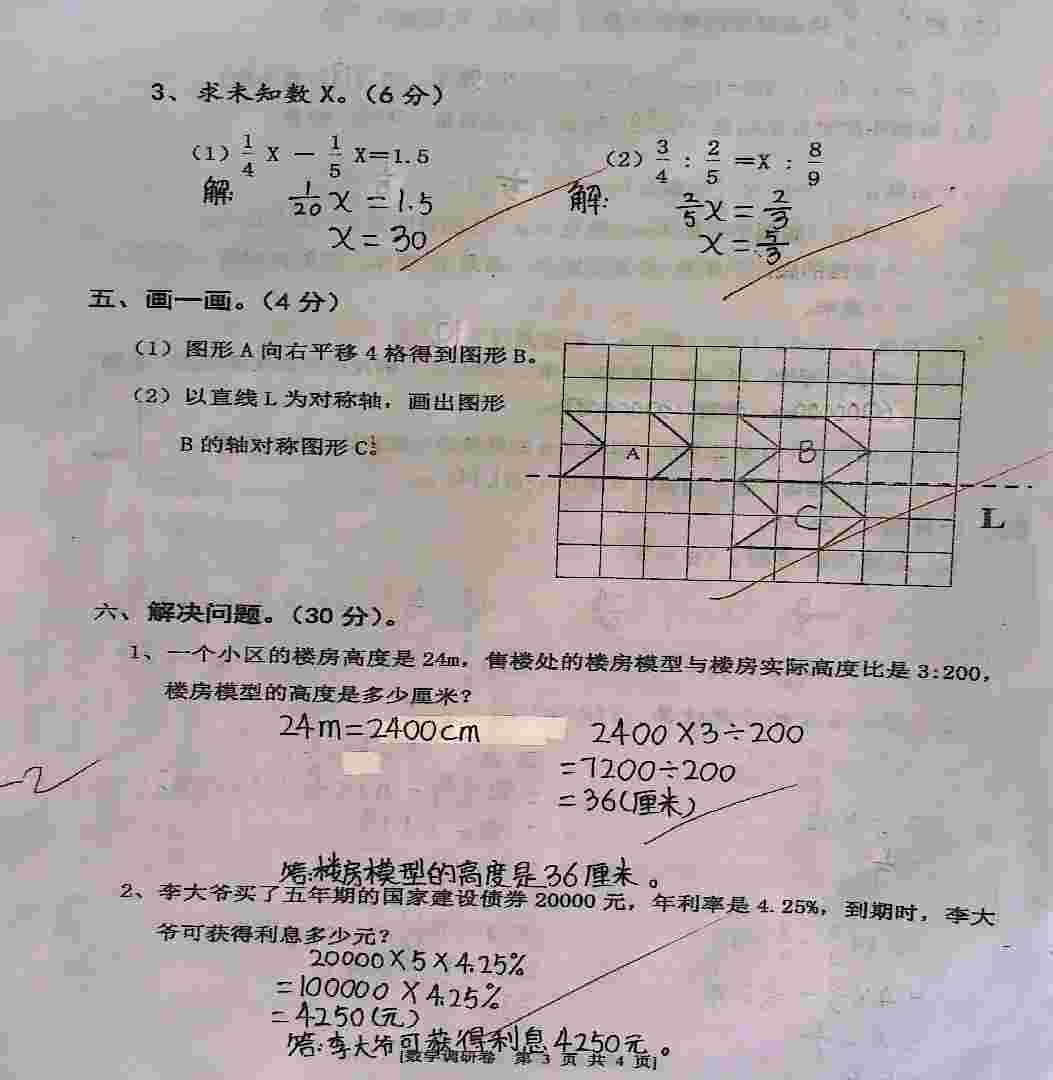 3、求未知数 X。（6 分）
（1）1/4 X － 1/5 X=1.5
（2）3/4 : 2/5 =X : 8/9
解: 1/20 x = 1.5
x = 30
解: 2/5 x = 2/3
x = 5/3
五、画一画。（4 分）
（1）图形 A 向右平移 4 格得到图形 B。
（2）以直线 L 为对称轴，画出图形
B 的轴对称图形 C。
A
B
C
L
六、解决问题。（30 分）。
1、一个小区的楼房高度是 24m，售楼处的楼房模型与楼房实际高度比是 3:200，
楼房模型的高度是多少厘米？
24m=2400cm
2400×3÷200
=7200÷200
=36(厘米)
-2
答:楼房模型的高度是36厘米。
2、李大爷买了五年期的国家建设债券 20000 元，年利率是 4.25%，到期时，李大
爷可获得利息多少元？
20000×5×4.25%
=100000×4.25%
=4250(元)
答:李大爷可获得利息4250元。
[数学调研卷 第 3 页 共 4 页]